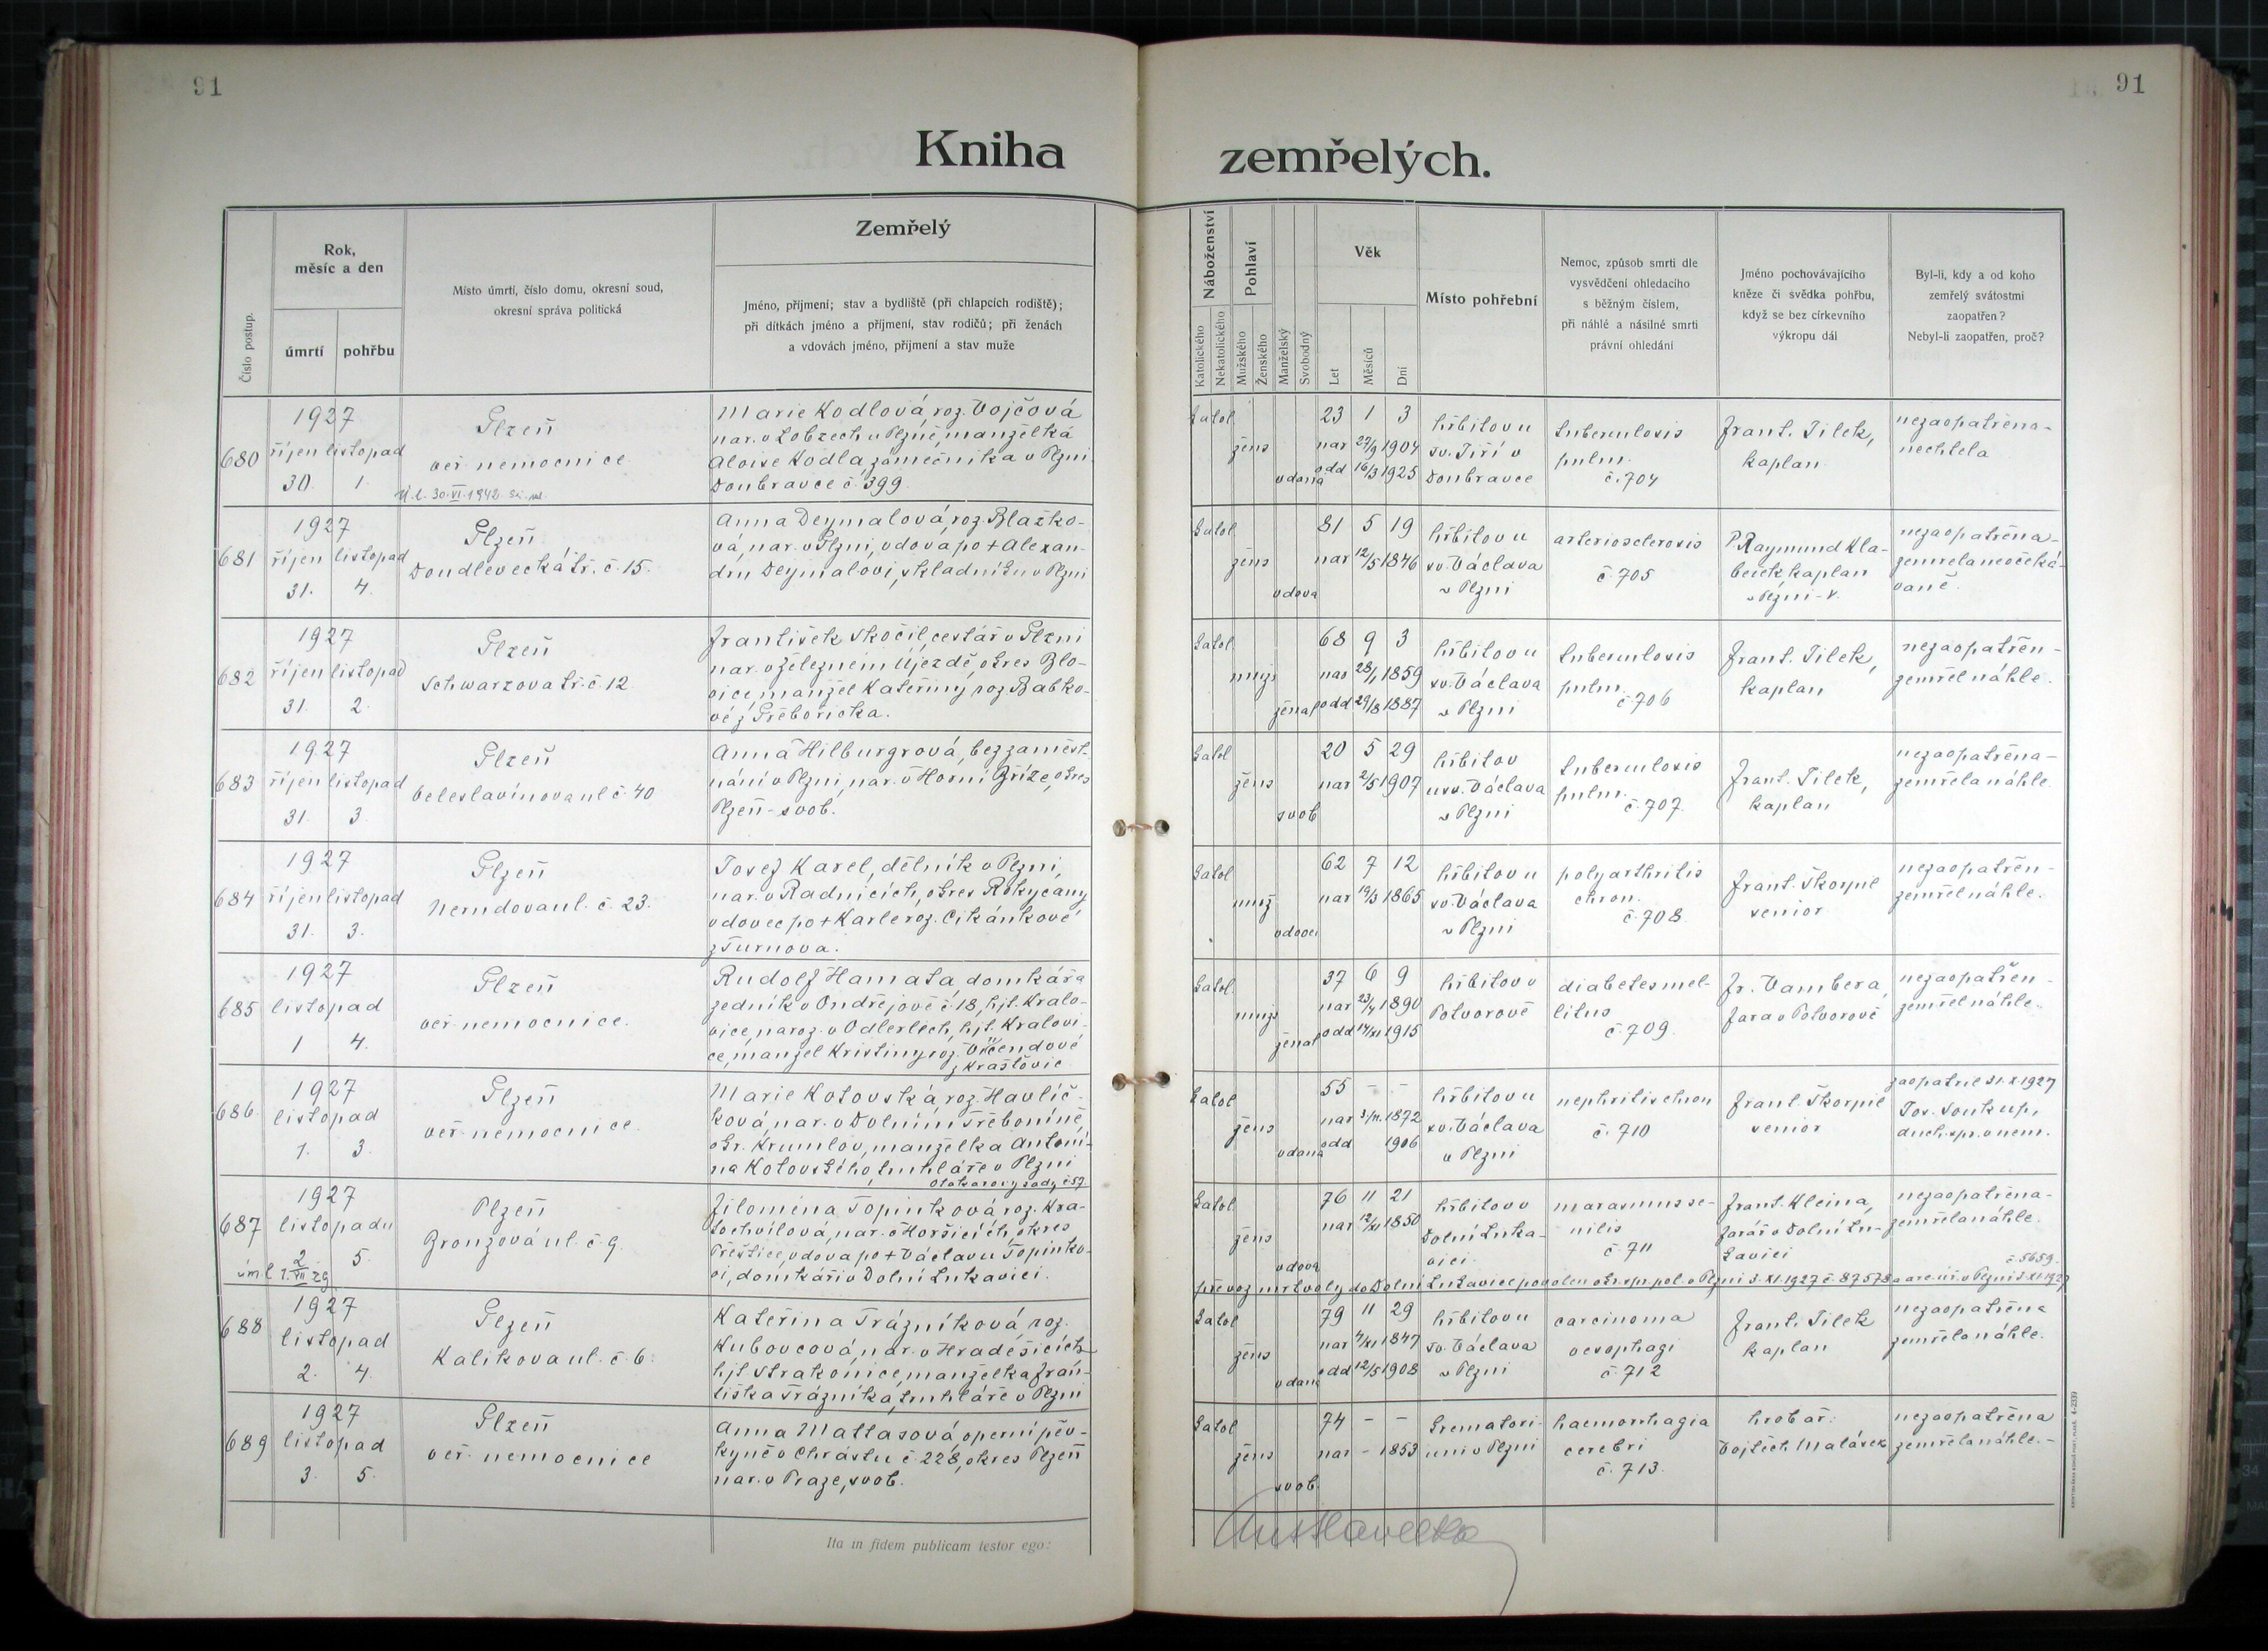 91
91
Kniha zemřelých.
Číslo postup.
Rok,
měsíc a den
úmrtí
pohřbu
Místo úmrtí, číslo domu, okresní soud,
okresní správa politická
Zemřelý
Jméno, příjmení; stav a bydliště (při chlapcích rodiště);
při dítkách jméno a příjmení, stav rodičů; při ženách
a vdovách jméno, příjmení a stav muže
Náboženství
Katolického
Nekatolického
Pohlaví
Mužského
Ženského
Manželský
Svobodný
Věk
Let
Měsíců
Dní
Místo pohřební
Nemoc, způsob smrti dle
vysvědčení ohledacího
s běžným číslem,
při náhlé a násilné smrti
právní ohledání
Jméno pochovávajícího
kněze či svědka pohřbu,
když se bez církevního
výkropu dál
Byl-li, kdy a od koho
zemřelý svátostmi
zaopatřen?
Nebyl-li zaopatřen, proč?
680
1927
říjen listopad
30. 1.
Plzeň
veř. nemocnice
Ú. l. 30.VI.1942
Marie Kodlová roz. Vojčová
nar. v Lobzech u Plzně, manželka
Aloise Kodla, zámečníka v Plzni
Doubravce č. 399.
katol.
žens
vdaná
23 1 3
nar 27/9 1904
odd 16/3 1925
hřbitov u
sv. Jiří v
Doubravce
tuberculosis
pulm.
č. 704
Frant. Jílek,
kaplan
nezaopatřena-
nechtěla
681
1927
říjen listopad
31. 4.
Plzeň
Doudlevecká tř. č. 15.
Anna Deymalová, roz. Blažko-
vá, nar. v Plzni, vdova po + Alexan-
dru Deymalovi, skladníku v Plzni
katol.
žens
vdova
81 5 19
nar 12/5 1846
hřbitov u
sv. Václava
v Plzni
arteriosclerosis
č. 705
P. Raymund Kla-
beček, kaplan
v Plzni - V.
nezaopatřena-
zemřela neočeká-
vaně.
682
1927
říjen listopad
31. 2.
Plzeň
Schwarzova tř. č. 12
František Skočil, cestář v Plzni
nar. v Železném Újezdě, okres Blo-
vice, manžel Kateřiny roz. Babko-
vé z Přebořicka.
katol.
muž
ženat
68 9 3
nar 28/1 1859
odd 29/8 1887
hřbitov u
sv. Václava
v Plzni
tuberculosis
pulm.
č. 706
Frant. Jílek,
kaplan
nezaopatřen-
zemřel náhle.
683
1927
říjen listopad
31. 3.
Plzeň
Veleslavínova ul č. 40
Anna Hilburgrová, bez zaměst-
nání v Plzni, nar. v Horní Bříze, okres
Plzeň - svob.
katol
žens
svob
20 5 29
nar 2/5 1907
hřbitov
u sv. Václava
v Plzni
tuberculosis
pulm.
č. 707.
Frant. Jílek,
kaplan
nezaopatřena-
zemřela náhle.
684
1927
říjen listopad
31. 3.
Plzeň
Nerudova ul. č. 23.
Josef Karel, dělník v Plzni,
nar. v Radnicích, okres Rokycany
vdovec po + Karle roz. Cikánkové
z Turnova.
katol.
muž
vdovec
62 7 12
nar 19/3 1865
hřbitov u
sv. Václava
v Plzni
polyarthritis
chron.
č. 708
Frant. Škorpil
senior
nezaopatřen-
zemřel náhle.
685
1927
listopad
1 4.
Plzeň
veř. nemocnice.
Rudolf Hamata, domkář a
zedník v Ondřejově č. 18, hjt. Kralo-
vice, naroz. v Odlerlech, hjt. Kralovi-
ce, manžel Kristiny roz.
z Kraštovic
katol.
muž
ženat
37 6 9
nar 23/4 1890
odd 14/XI 1915
hřbitov v
Potvorově
diabetes mel-
litus
č. 709.
Fr. Vambera,
fara v Potvorově
nezaopatřen-
zemřel náhle.
686
1927
listopad
1. 3.
Plzeň
veř. nemocnice.
Marie Kotovská, roz. Havlíč-
ková, nar. v Dolním Třeboníně,
okr. Krumlov, manželka Antoní-
na Kotovského, truhláře v Plzni
Otakarovy sady č 57.
katol
žens
vdaná
55 - -
nar 1872
odd 1906
hřbitov u
sv. Václava
v Plzni
nephritis chron
č. 710
Frant. Škorpil
senior
zaopatřil 31. X. 1927
Jos. Soukup,
duch. spr. v nem.
687
1927
listopadu
2 5.
Plzeň
Bronzová ul. č 9.
Filomena Topinková roz. Kra-
tochvílová, nar. v Horšicích, okres
Přeštice, vdova po + Václavu Topinko-
vi, domkáři v Dolní Lukavici.
katol.
žens
vdova
76 11 21
nar 12/XI 1850
hřbitov v
Dolní Luka-
vici.
marasmus se-
nilis
č. 711
Frant. Kleina,
farář v Dolní Lu-
kavici
nezaopatřena-
zemřela náhle.
č. 5659.
převoz mrtvoly do Dolní Lukavice povolen okr. spr. pol. v Plzni 3. XI. 1927 č. 87573
688
1927
listopad
2. 4.
Plzeň
Kalikova ul. č. 6.
Kateřina Trázníková, roz.
Kubovcová, nar. v Hradešicích
hjt. Strakonice, manželka Fran-
tiška Trázníka, truhláře v Plzni
katol
žens
vdaná
79 11 29
nar 4/XI 1847
odd 12/5 1908
hřbitov u
sv. Václava
v Plzni
carcinoma
oesophagi
č. 712
Frant. Jílek
kaplan
nezaopatřena
zemřela náhle.
689
1927
listopad
3. 5.
Plzeň
veř. nemocnice
Anna Mattasová, operní pěv-
kyně v Chrástu č. 228, okres Plzeň
nar. v Praze, svob.
katol
žens
svob.
74 - -
nar - 1853
krematori-
um v Plzni
haemorrhagia
cerebri
č. 713.
hrobař:
Vojtěch Malásek
nezaopatřena
zemřela náhle.-
Ita in fidem publicam testor ego: